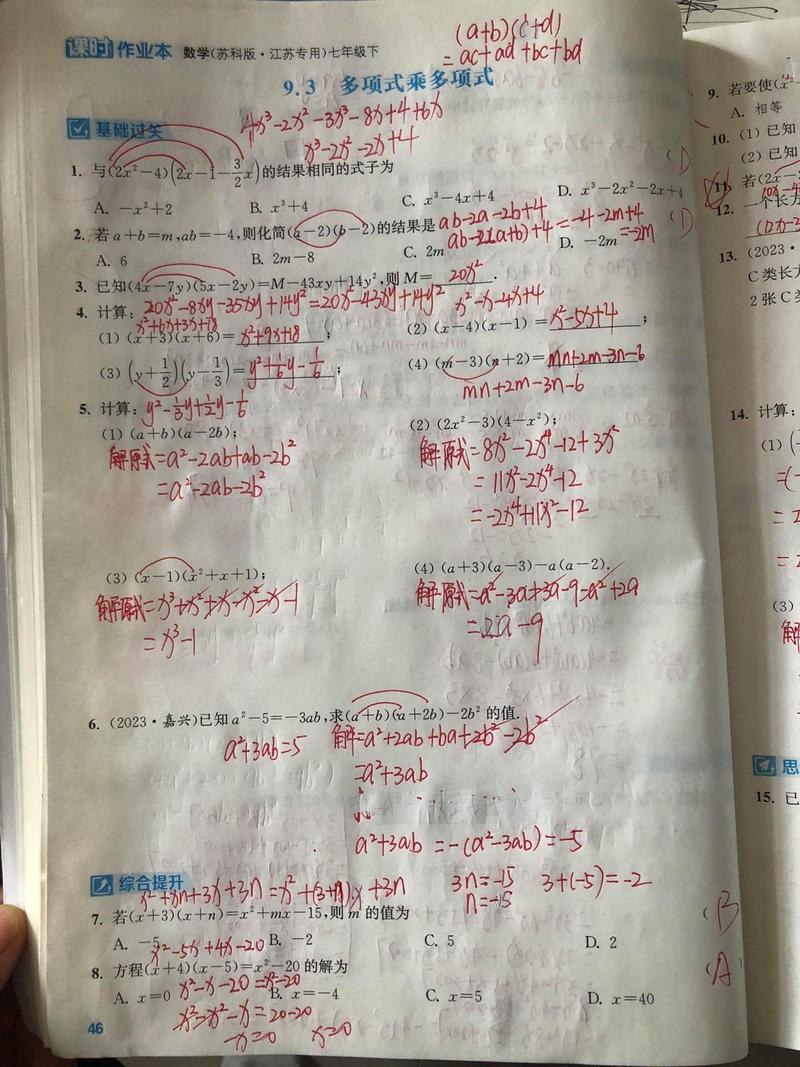 课时作业本 数学(苏科版·江苏专用)七年级下
(a+b)(c+d)
=ac+ad+bc+bd
9.3 多项式乘多项式
基础过关
4x³-2x²-3x³-8x+4+6x
x³-2x²-2x+4
1. 与(2x²-4)(2x-1-3/2x)的结果相同的式子为 (D)
A. -x²+2 B. x³+4 C. x³-4x+4 D. x³-2x²-2x+4
2. 若a+b=m,ab=-4,则化简(a-2)(b-2)的结果是 (D)
ab-2a-2b+4
ab-2(a+b)+4=-4-2m+4
=-2m
A. 6 B. 2m-8 C. 2m D. -2m
3. 已知(4x-7y)(5x-2y)=M-43xy+14y²,则M= 20x² .
20x²-8xy-35xy+14y²=20x²-43xy+14y²
4. 计算:
x²+6x+3x+18
x²-x-4x+4
(1) (x+3)(x+6)= x²+9x+18 ;
(2) (x-4)(x-1)= x²-5x+4 ;
(3) (y+1/2)(y-1/3)= y²+1/6y-1/6 ;
(4) (m-3)(n+2)= mn+2m-3n-6
mn+2m-3n-6
5. 计算:
y²-1/3y+1/2y-1/6
(1) (a+b)(a-2b);
解:原式=a²-2ab+ab-2b²
=a²-2ab-2b²
(2) (2x²-3)(4-x²);
解:原式=8x²-2x⁴-12+3x²
=11x²-2x⁴-12
=-2x⁴+11x²-12
(3) (x-1)(x²+x+1);
解:原式=x³+x²+x-x²-x-1
=x³-1
(4) (a+3)(a-3)-a(a-2).
解:原式=a²-3a+3a-9-a²+2a
=2a-9
6. (2023·嘉兴)已知a²-5=-3ab,求(a+b)(a+2b)-2b²的值.
a²+3ab=5
解:=a²+2ab+ba+2b²-2b²
=a²+3ab
a²+3ab=-(a²-3ab)=-5
综合提升
x²+xn+3x+3n=x²+(3+n)x+3n
3n=-15
n=-15
3+(-5)=-2
7. 若(x+3)(x+n)=x²+mx-15,则m的值为 (B)
A. -5 B. -2 C. 5 D. 2
x²-5x+4x-20
8. 方程(x+4)(x-5)=x²-20的解为 (A)
A. x=0 B. x=-4 C. x=5 D. x=40
x²-x-20=x²-20
x²-x²-x=20-20
-x=0 x=0
46
9. 若要使(x²-
A. 相等
10. (1) 已知
(2) 已知
11. 若(2x-
12. 一个长方
13. (2023·
C类长方
2张C类
14. 计算:
(1)
=(-
(3)
解
思
15. 已